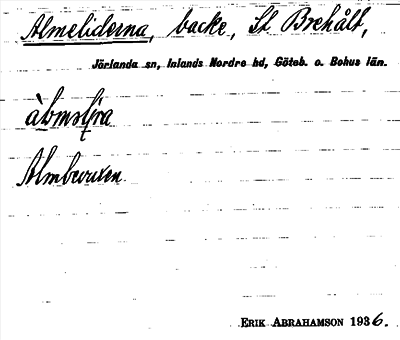 Almeliderna, backe, St. Brehålt,
Jörlanda sn, Inlands Nordre hd, Göteb. o. Bohus län.
Almbevuxen
ERIK ABRAHAMSON 1936.